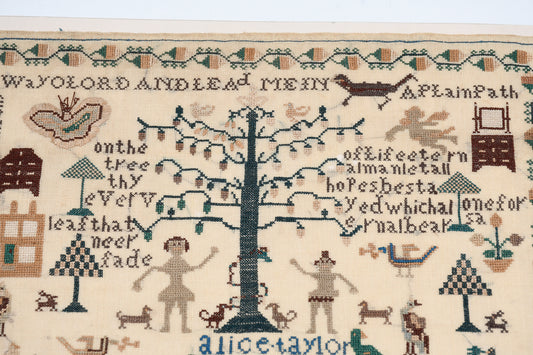 WaYOLORD ANDLEAd MEIN APLainPath
onthe
tree
thy
eVerV
leafthat
neer
fade
ofLifeetern
almanletall
hopesbesta
yedwhichal
ernalbear
onefor
sa
alice·taylor